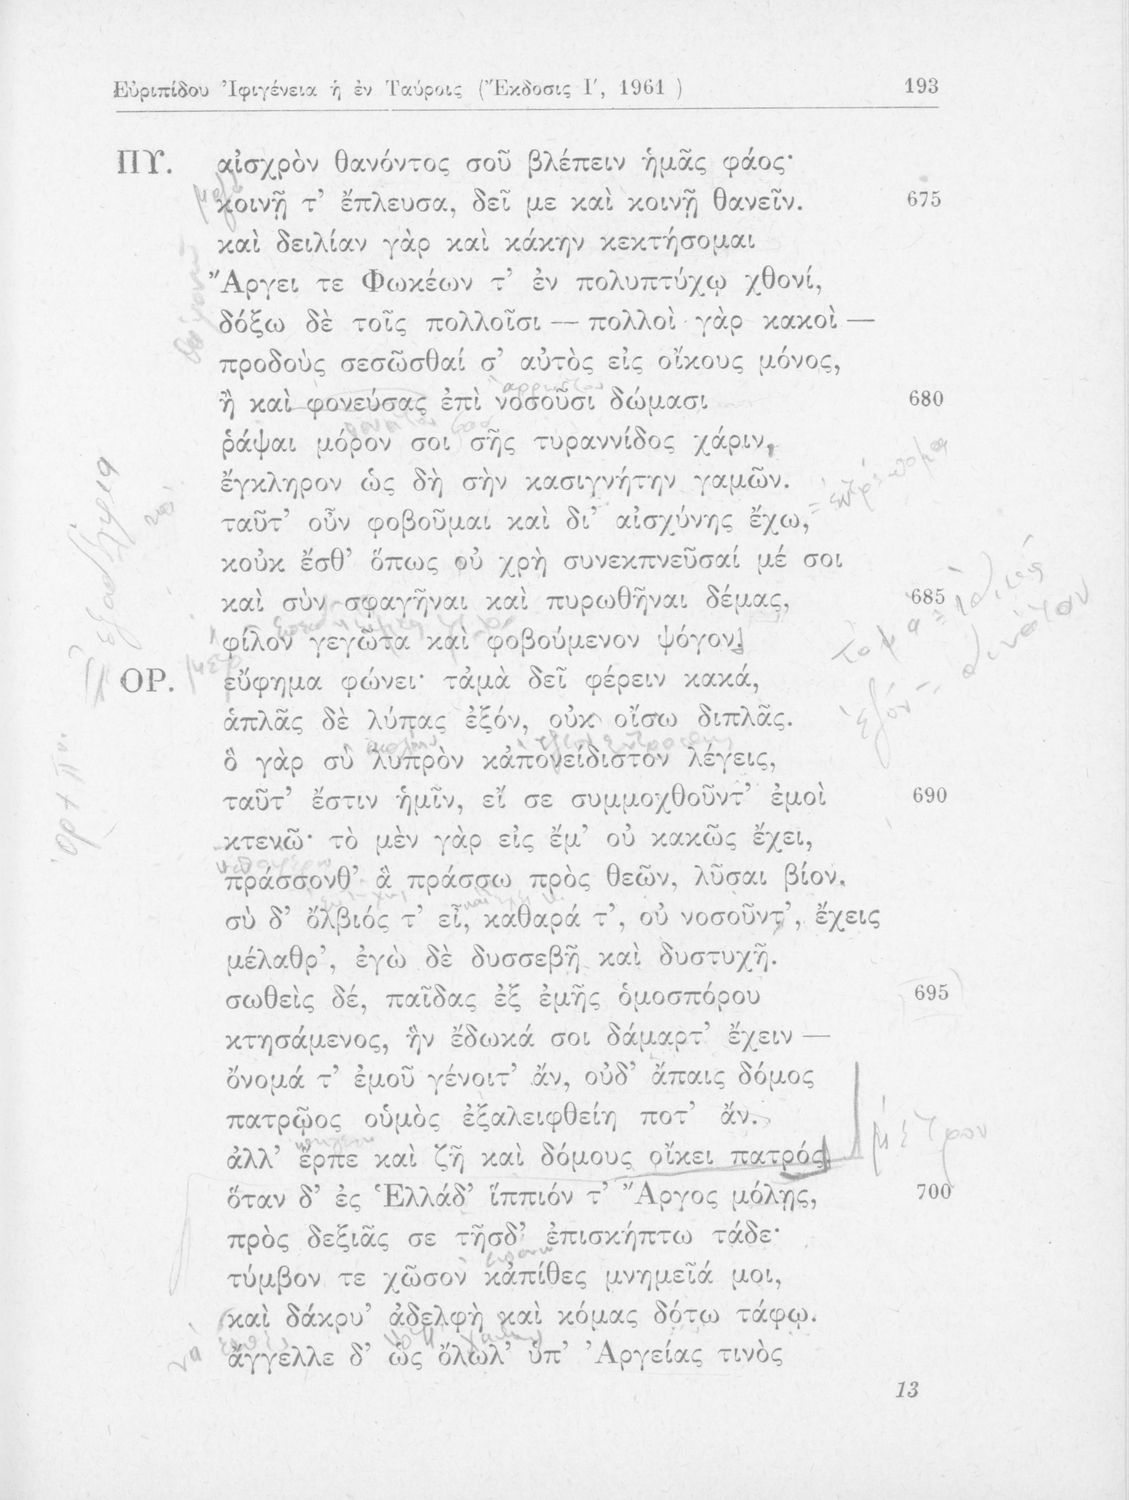 Εὐριπίδου Ἰφιγένεια ἡ ἐν Ταύροις (Ἔκδοσις Γ′, 1961) 193
ΠΥ. αἰσχρὸν θανόντος σοῦ βλέπειν ἡμᾶς φάος·
κοινῇ τ' ἔπλευσα, δεῖ με καὶ κοινῇ θανεῖν. 675
καὶ δειλίαν γὰρ καὶ κάκην κεκτήσομαι
Ἄργει τε Φωκέων τ' ἐν πολυπτύχῳ χθονί,
δόξω δὲ τοῖς πολλοῖσι — πολλοὶ γὰρ κακοὶ —
προδοὺς σεσῶσθαί σ' αὐτὸς εἰς οἴκους μόνος,
ἢ καὶ φονεύσας ἐπὶ νοσοῦσι δώμασι 680
ῥάψαι μόρον σοι σῆς τυραννίδος χάριν,
ἔγκληρον ὡς δὴ σὴν κασιγνήτην γαμῶν.
ταῦτ' οὖν φοβοῦμαι καὶ δι' αἰσχύνης ἔχω,
κοὐκ ἔσθ' ὅπως οὐ χρὴ συνεκπνεῦσαί μέ σοι
καὶ σὺν σφαγῆναι καὶ πυρωθῆναι δέμας, 685
φίλον γεγῶτα καὶ φοβούμενον ψόγον.
ΟΡ. εὔφημα φώνει· τἀμὰ δεῖ φέρειν κακά,
ἁπλᾶς δὲ λύπας ἐξόν, οὐκ οἴσω διπλᾶς.
ὃ γὰρ σὺ λυπρὸν κἀπονείδιστον λέγεις,
ταῦτ' ἔστιν ἡμῖν, εἴ σε συμμοχθοῦντ' ἐμοὶ 690
κτενῶ· τὸ μὲν γὰρ εἰς ἔμ' οὐ κακῶς ἔχει,
πράσσονθ' ἃ πράσσω πρὸς θεῶν, λῦσαι βίον.
σὺ δ' ὄλβιός τ' εἶ, καθαρά τ', οὐ νοσοῦντ', ἔχεις
μέλαθρ', ἐγὼ δὲ δυσσεβῆ καὶ δυστυχῆ.
σωθεὶς δέ, παῖδας ἐξ ἐμῆς ὁμοσπόρου 695
κτησάμενος, ἣν ἔδωκά σοι δάμαρτ' ἔχειν —
ὄνομά τ' ἐμοῦ γένοιτ' ἄν, οὐδ' ἄπαις δόμος
πατρῷος οὑμὸς ἐξαλειφθείη ποτ' ἄν.
μέτρον
ἀλλ' ἕρπε καὶ ζῆ καὶ δόμους οἴκει πατρός.
ὅταν δ' ἐς Ἑλλάδ' ἵππιόν τ' Ἄργος μόλῃς, 700
πρὸς δεξιᾶς σε τῆσδ' ἐπισκήπτω τάδε·
τύμβον τε χῶσον κἀπίθες μνημεῖά μοι,
καὶ δάκρυ' ἀδελφὴ καὶ κόμας δότω τάφῳ.
ἄγγελλε δ' ὡς ὄλωλ' ὑπ' Ἀργείας τινὸς
13